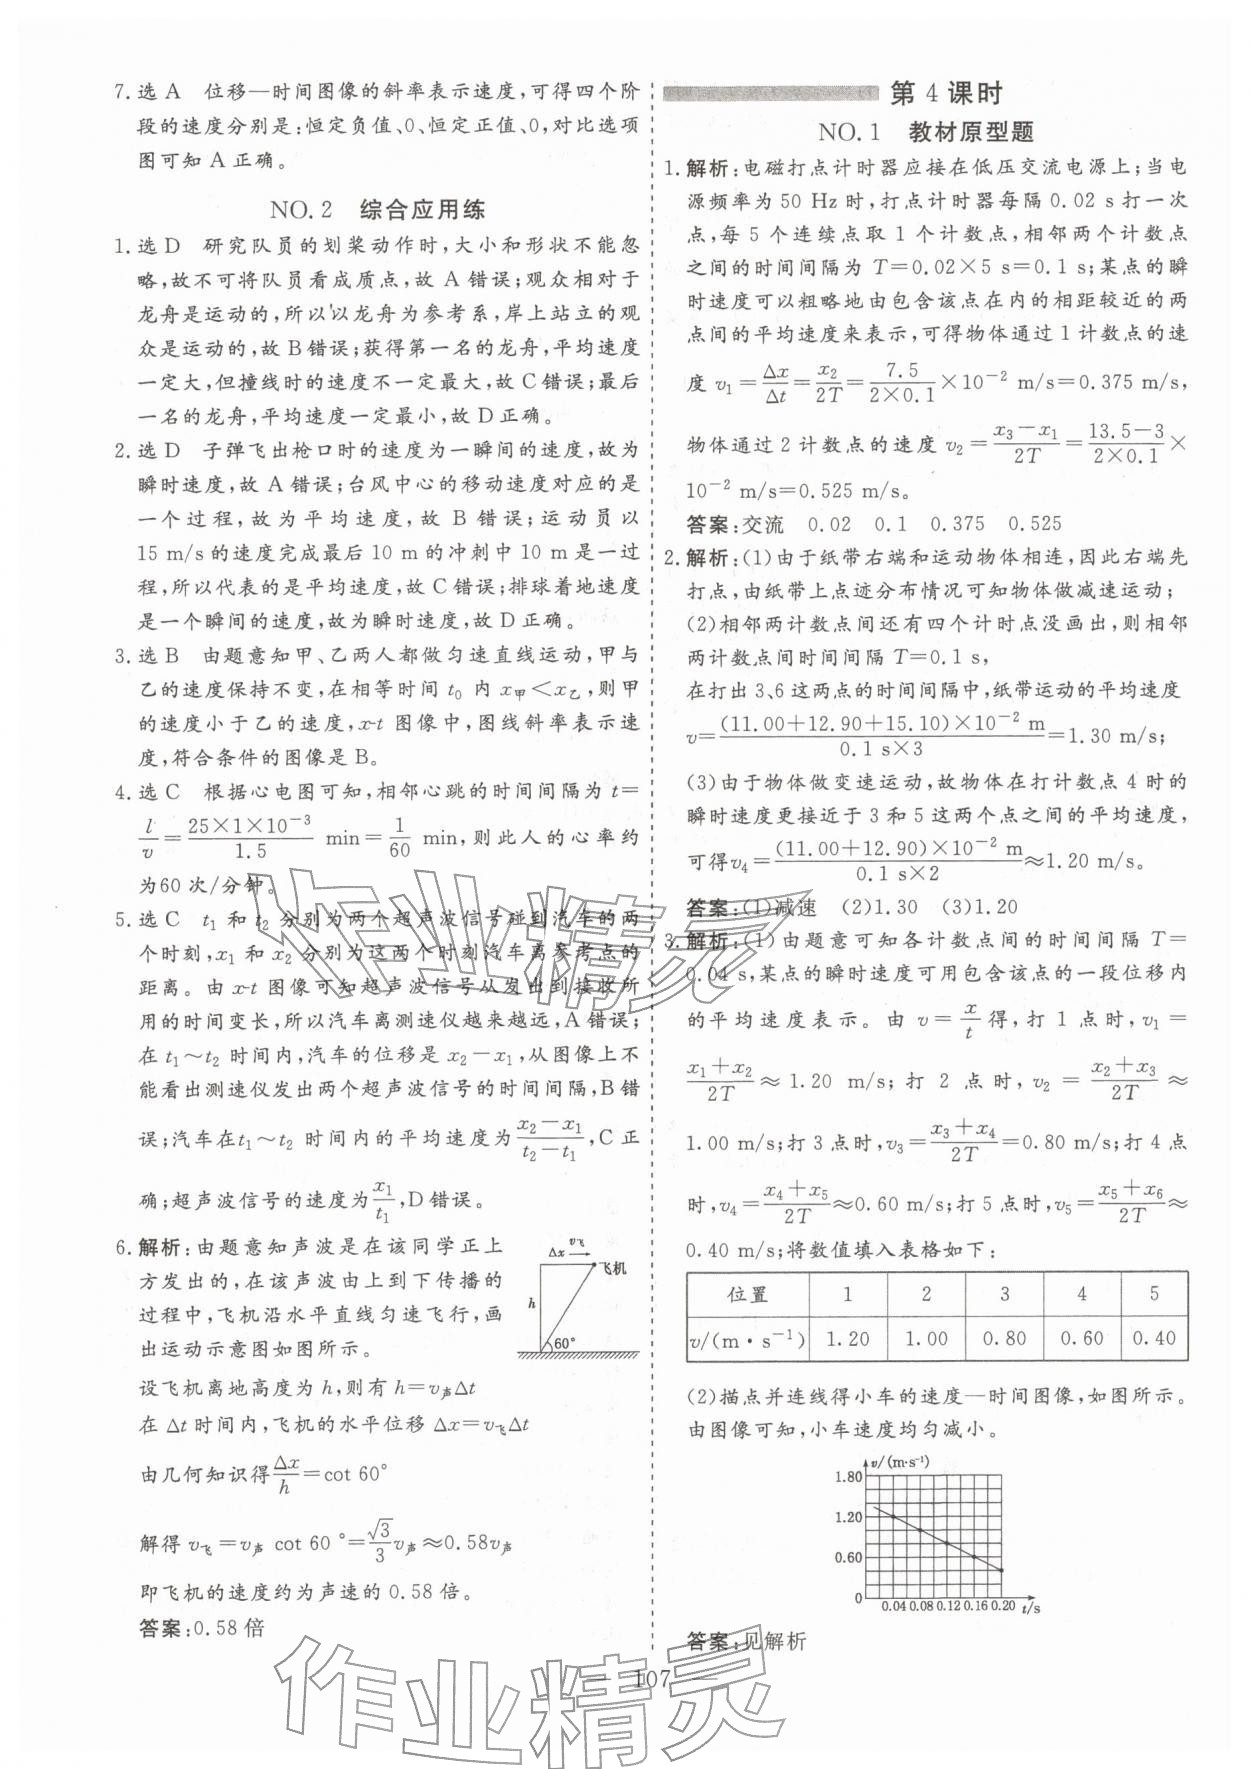 7. 选 A　位移—时间图像的斜率表示速度,可得四个阶
段的速度分别是:恒定负值、0、恒定正值、0,对比选项
图可知 A 正确。
NO. 2　综合应用练
1. 选 D　研究队员的划桨动作时,大小和形状不能忽
略,故不可将队员看成质点,故 A 错误;观众相对于
龙舟是运动的,所以以龙舟为参考系,岸上站立的观
众是运动的,故 B 错误;获得第一名的龙舟,平均速度
一定大,但撞线时的速度不一定最大,故 C 错误;最后
一名的龙舟,平均速度一定最小,故 D 正确。
2. 选 D　子弹飞出枪口时的速度为一瞬间的速度,故为
瞬时速度,故 A 错误;台风中心的移动速度对应的是
一个过程,故为平均速度,故 B 错误;运动员以
15 m/s 的速度完成最后 10 m 的冲刺中 10 m 是一过
程,所以代表的是平均速度,故 C 错误;排球着地速度
是一个瞬间的速度,故为瞬时速度,故 D 正确。
3. 选 B　由题意知甲、乙两人都做匀速直线运动,甲与
乙的速度保持不变,在相等时间 t₀ 内 x甲<x乙,则甲
的速度小于乙的速度,x-t 图像中,图线斜率表示速
度,符合条件的图像是 B。
4. 选 C　根据心电图可知,相邻心跳的时间间隔为 t=
l/v=25×1×10⁻³/1.5 min=1/60 min,则此人的心率约
为60 次/分钟。
5. 选 C　t₁ 和 t₂ 分别为两个超声波信号碰到汽车的两
个时刻,x₁ 和 x₂ 分别为这两个时刻汽车离参考点的
距离。由 x-t 图像可知超声波信号从发出到接收所
用的时间变长,所以汽车离测速仪越来越远,A 错误;
在 t₁～t₂ 时间内,汽车的位移是 x₂－x₁,从图像上不
能看出测速仪发出两个超声波信号的时间间隔,B 错
误;汽车在t₁～t₂ 时间内的平均速度为(x₂－x₁)/(t₂－t₁),C 正
确;超声波信号的速度为x₁/t₁,D 错误。
6. 解析:由题意知声波是在该同学正上
方发出的,在该声波由上到下传播的
过程中,飞机沿水平直线匀速飞行,画
出运动示意图如图所示。
Δx v飞
飞机
h
60°
设飞机离地高度为 h,则有 h=v声Δt
在 Δt 时间内,飞机的水平位移 Δx=v飞Δt
由几何知识得Δx/h=cot 60°
解得 v飞=v声 cot 60°=√3/3v声≈0.58v声
即飞机的速度约为声速的 0.58 倍。
答案:0.58 倍
第 4 课时
NO. 1　教材原型题
1. 解析:电磁打点计时器应接在低压交流电源上;当电
源频率为 50 Hz 时,打点计时器每隔 0.02 s 打一次
点,每 5 个连续点取 1 个计数点,相邻两个计数点
之间的时间间隔为 T=0.02×5 s=0.1 s;某点的瞬
时速度可以粗略地由包含该点在内的相距较近的两
点间的平均速度来表示,可得物体通过 1 计数点的速
度 v₁=Δx/Δt=x₂/2T=7.5/(2×0.1)×10⁻² m/s=0.375 m/s,
物体通过 2 计数点的速度 v₂=(x₃－x₁)/2T=(13.5－3)/(2×0.1)×
10⁻² m/s=0.525 m/s。
答案:交流　0.02　0.1　0.375　0.525
2. 解析:(1)由于纸带右端和运动物体相连,因此右端先
打点,由纸带上点迹分布情况可知物体做减速运动;
(2)相邻两计数点间还有四个计时点没画出,则相邻
两计数点间时间间隔 T=0.1 s,
在打出 3、6 这两点的时间间隔中,纸带运动的平均速度
v=(11.00+12.90+15.10)×10⁻² m/(0.1 s×3)=1.30 m/s;
(3)由于物体做变速运动,故物体在打计数点 4 时的
瞬时速度更接近于 3 和 5 这两个点之间的平均速度,
可得v₄=(11.00+12.90)×10⁻² m/(0.1 s×2)≈1.20 m/s。
答案:(1)减速　(2)1.30　(3)1.20
3. 解析:(1)由题意可知各计数点间的时间间隔 T=
0.04 s,某点的瞬时速度可用包含该点的一段位移内
的平均速度表示。由 v=x/t得,打 1 点时,v₁=
(x₁+x₂)/2T≈1.20 m/s;打 2 点时,v₂=(x₂+x₃)/2T≈
1.00 m/s;打 3 点时,v₃=(x₃+x₄)/2T=0.80 m/s;打 4 点
时,v₄=(x₄+x₅)/2T≈0.60 m/s;打 5 点时,v₅=(x₅+x₆)/2T≈
0.40 m/s;将数值填入表格如下:
位置　1　2　3　4　5
v/(m·s⁻¹)　1.20　1.00　0.80　0.60　0.40
(2)描点并连线得小车的速度—时间图像,如图所示。
由图像可知,小车速度均匀减小。
v/(m·s⁻¹)
1.80
1.20
0.60
0
0.04 0.08 0.12 0.16 0.20 t/s
答案:见解析
107
作业精灵
作业精灵